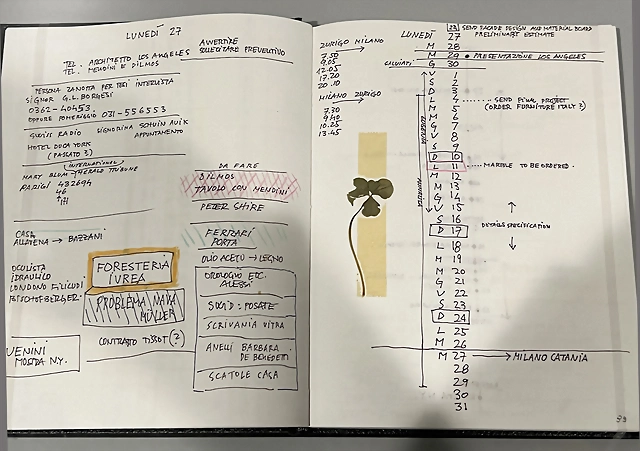 LUNEDÌ 27
TEL. ARCHITETTO LOS ANGELES
TEL. MENDINI E DILMOS
AVVERTIRE
SOLLECITARE PREVENTIVO
PERSONA ZANOTTA PER INTERVISTA
SIGNOR G.L. BORGESI
0362-40453.
OPPURE POMERIGGIO 031-556553
SWISS RADIO SIGNORINA
APPUNTAMENTO
HOTEL DUCA YORK
(PASSATO 3)
INTERNATIONAL
MARY BLUM HERALD TRIBUNE
PARIGI
46
DA FARE
DILMOS
TAVOLO CON MENDINI
PETER SHIRE
CASA
ALLDENA → BAZZANI
FERRARI
PORTA
OLIO ACETO → LEGNO
OCULISTA
IDRAULICO
LONDONO
BISCHOFBERGER
FORESTERIA
IVREA
PROBLEMA NAVA
MÜLLER
CONTRASTO TISSOT (?)
OROLOGIO ETC.
ALESSI
POSATE
SCRIVANIA VITRA
ANELLI BARBARA
DE BENEDETTI
SCATOLE CASA
VENINI
MOSTRA N.Y.
ZURIGO MILANO
7.50
9.05
12.05
17.20
20.10
MILANO ZURIGO
7.30
9.40
10.25
13.45
23 SEND FACADE DESIGN AND MATERIAL BOARD
PRELIMINARY ESTIMATE
LUNEDÌ 27
M 28
M 29 • PRESENTAZIONE LOS ANGELES
G 30
V 1
S 2
D 3
L 4 SEND FINAL PROJECT
(ORDER FURNITURE ITALY ?)
M 5
M 6
G 7
V 8
S 9
D 10
L 11 MARBLE TO BE ORDERED
M 12
M 13
G 14
V 15
S 16
D 17 DETAILS SPECIFICATION
L 18
M 19
M 20
G 21
V 22
S 23
D 24
L 25
M 26
M 27 → MILANO CATANIA
28
29
30
31